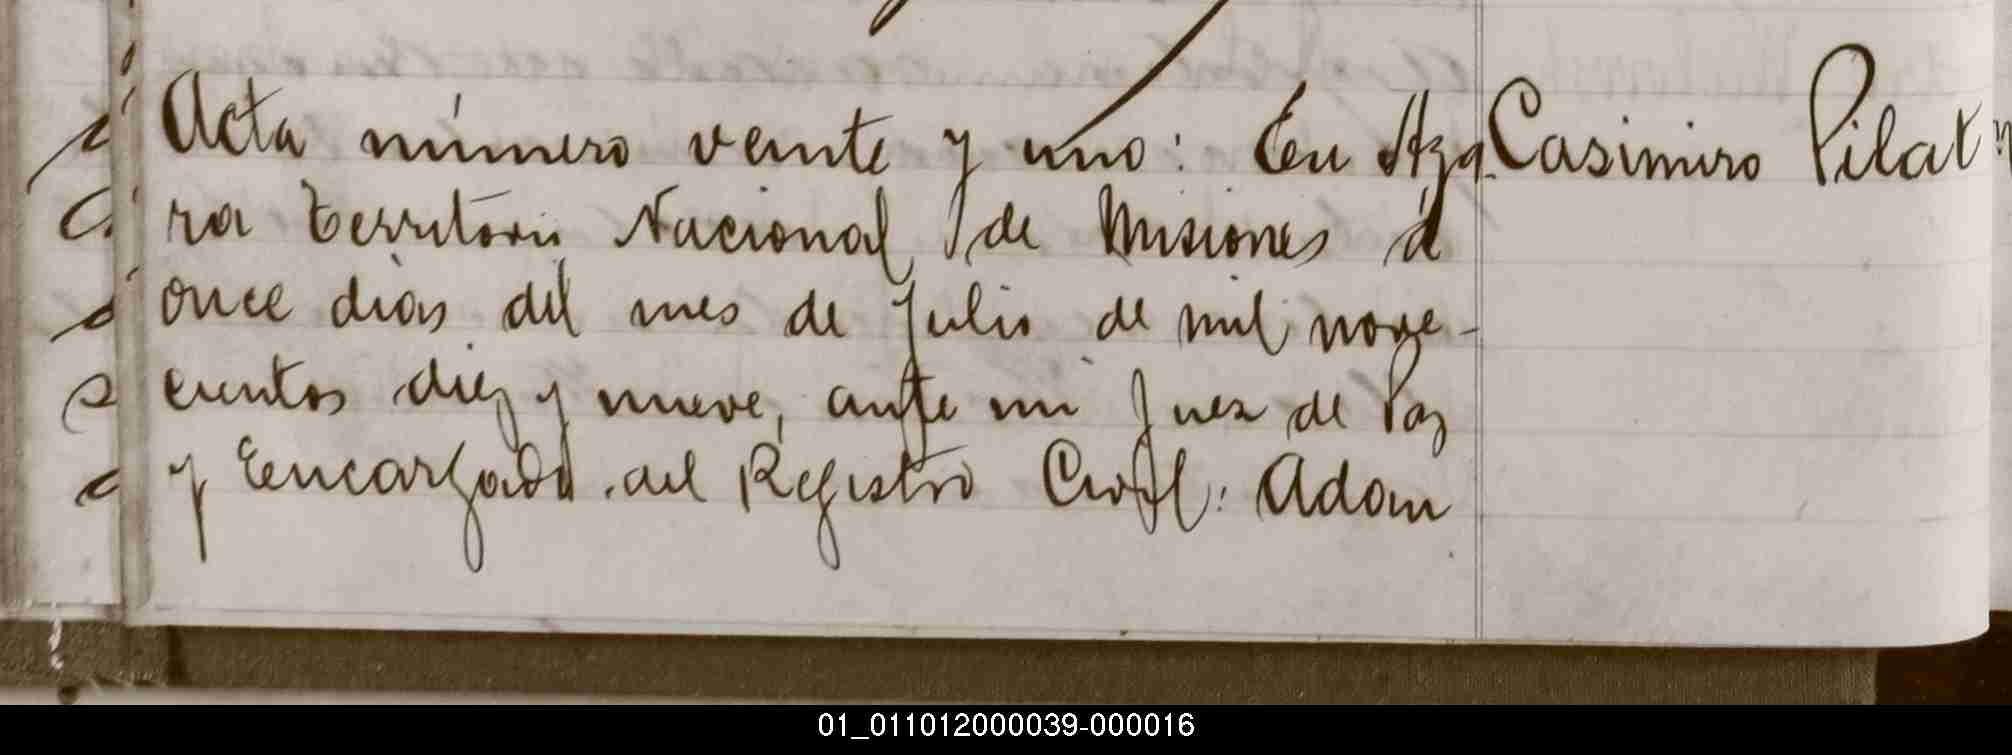 Acta número veinte y uno: En Aza
Casimiro Pilat
ra territorio Nacional de Misiones á
once dias del mes de Julio de mil nove-
cientos diez y nueve, ante mi Juez de Paz
y Encargado del Registro Civil: Adam
01_011012000039-000016